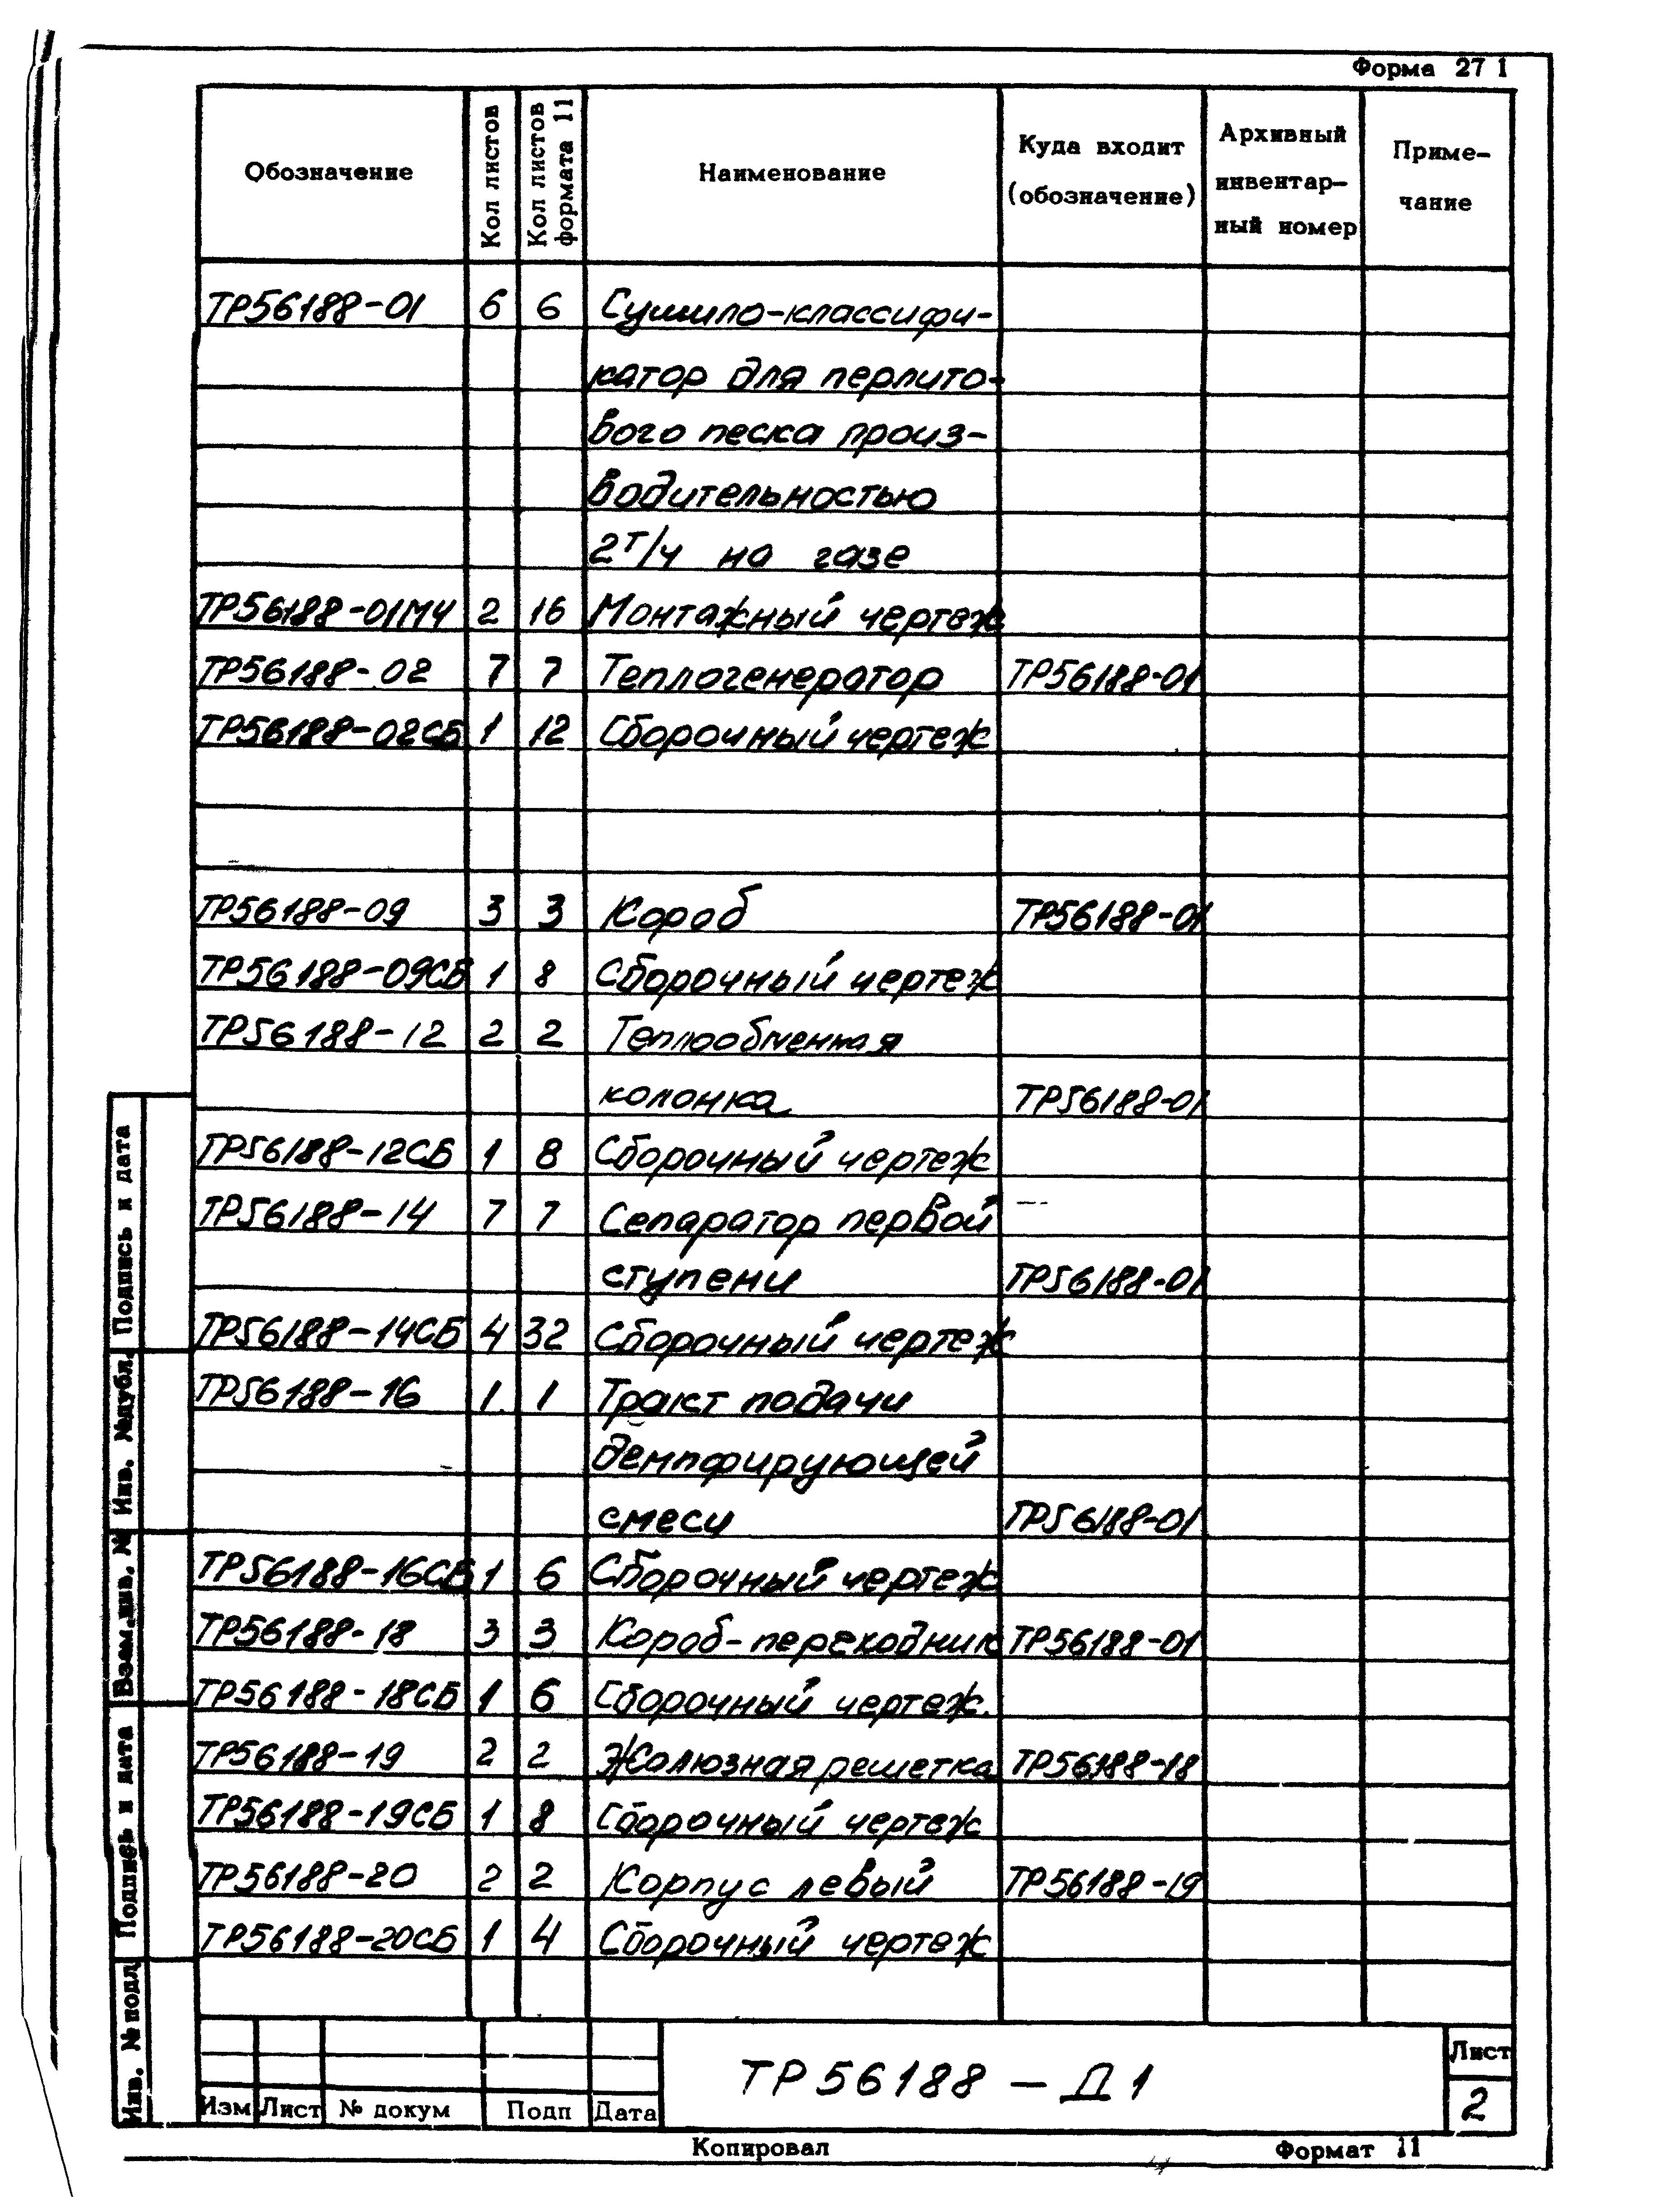 Форма 27 1
Обозначение Кол листов Кол листов формата 11 Наименование Куда входит (обозначение) Архивный инвентар- ный номер Приме- чание
ТР56188-01 6 6 Сушило-классифи-
катор для перлито-
вого песка произ-
водительностью
2т/ч на газе
ТР56188-01МЧ 2 16 Монтажный чертеж
ТР56188-02 7 7 Теплогенератор ТР56188-01
ТР56188-02СБ 1 12 Сборочный чертеж
ТР56188-09 3 3 Короб ТР56188-01
ТР56188-09СБ 1 8 Сборочный чертеж
ТР56188-12 2 2 Теплообменная
колонка ТР56188-01
ТР56188-12СБ 1 8 Сборочный чертеж
ТР56188-14 7 7 Сепаратор первой
ступени ТР56188-01
ТР56188-14СБ 4 32 Сборочный чертеж
ТР56188-16 1 1 Тракт подачи
демпфирующей
смеси ТР56188-01
ТР56188-16СБ 1 6 Сборочный чертеж
ТР56188-18 3 3 Короб-переходник ТР56188-01
ТР56188-18СБ 1 6 Сборочный чертеж.
ТР56188-19 2 2 Жалюзная решетка ТР56188-18
ТР56188-19СБ 1 8 Сборочный чертеж
ТР56188-20 2 2 Корпус левый ТР56188-19
ТР56188-20СБ 1 4 Сборочный чертеж
Инв. № подл Подпись и дата Взам.инв. № Инв. №дубл. Подпись и дата
Изм Лист № докум Подп Дата
ТР56188-Д1
Лист
2
Копировал Формат 11